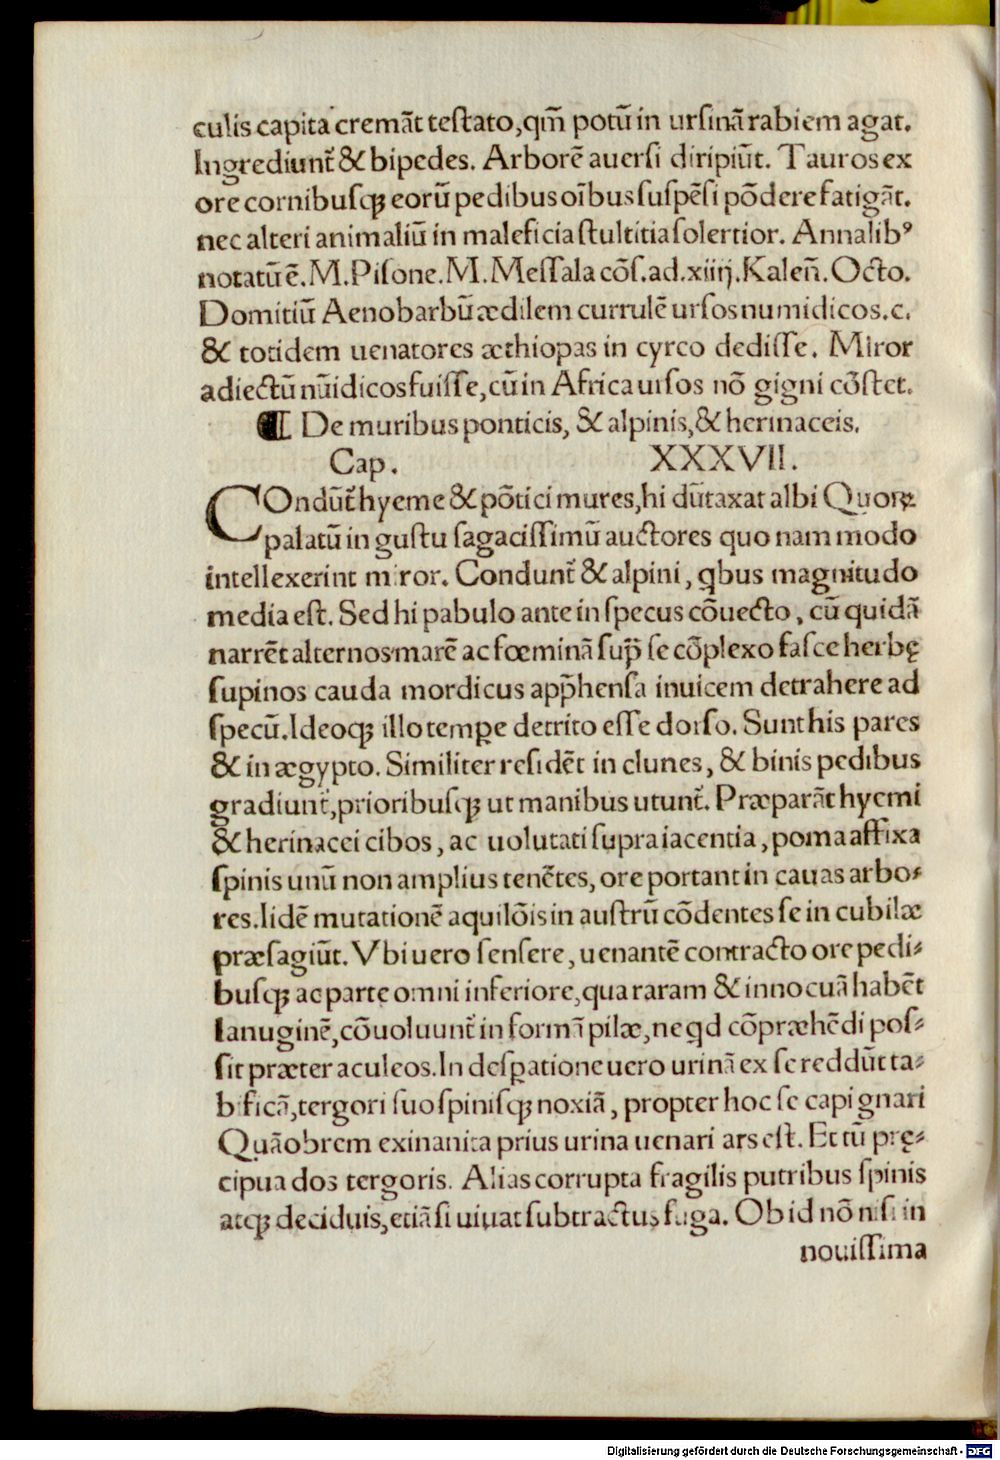 culis capita cremãt testato,qm̃ potũ in ursinã rabiem agat.
Ingrediunt̃ & bipedes. Arborẽ auersi diripiũt. Tauros ex
ore cornibusq; eorũ pedibus oĩbus suspẽsi põdere fatigãt.
nec alteri animaliũ in maleficia stultitia solertior. Annalibꝰ
notatũ ẽ. M. Pisone. M. Messala cõs. ad. xiiij. Kaleñ. Octo.
Domitiũ Aenobarbũ ædilem currulẽ ursos numidicos. c.
& totidem uenatores æthiopas in cyrco dedisse. Miror
adiectũ nũidicos fuisse, cũ in Africa ursos nõ gigni cõstet.
¶ De muribus ponticis, & alpinis, & herinaceis.
Cap. XXXVII.
COndũt̃ hyeme & põtici mures, hi dũtaxat albi Quoꝝ
palatũ in gustu sagacissimũ auctores quo nam modo
intellexerint miror. Condunt̃ & alpini, qbus magnitudo
media est. Sed hi pabulo ante in specus cõuecto, cũ quidã
narrẽt alternos marẽ ac fœminã sup̃ se cõplexo fasce herbę
supinos cauda mordicus app̃hensa inuicem detrahere ad
specũ. Ideoq; illo tempe detrito esse dorso. Sunt his pares
& in ægypto. Similiter residẽt in clunes, & binis pedibus
gradiunt̃, prioribusq; ut manibus utunt̃. Præparãt hyemi
& herinacei cibos, ac uolutati supra iacentia, poma affixa
spinis unũ non amplius tenẽtes, ore portant in cauas arbo-
res. Iidẽ mutationẽ aquilõis in austrũ cõdentes se in cubilæ
præsagiũt. Vbi uero sensere, uenantẽ contracto ore pedi-
busq; ac parte omni inferiore, qua raram & innocuã habẽt
lanuginẽ, cõuoluunt̃ in formã pilæ, ne qd cõpræhẽdi pos-
sit præter aculeos. In despatione uero urinã ex se reddũt ta-
bificã, tergori suo spinisq; noxiã, propter hoc se capi gnari
Quãobrem exinanita prius urina uenari ars est. Et tũ prę-
cipua dos tergoris. Alias corrupta fragilis putribus spinis
atq; deciduis, etiã si uiuat subtractus fuga. Ob id nõ nisi in
nouissima
Digitalisierung gefördert durch die Deutsche Forschungsgemeinschaft - DFG